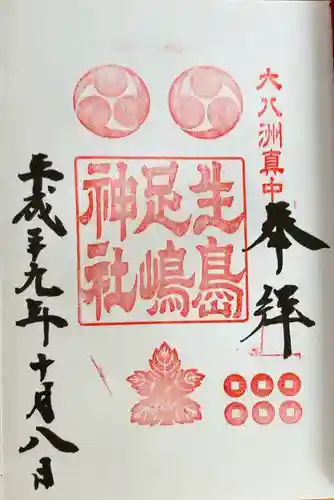 大八洲真中
奉祥
生島
足嶋
神社
平成二十九年十月八日